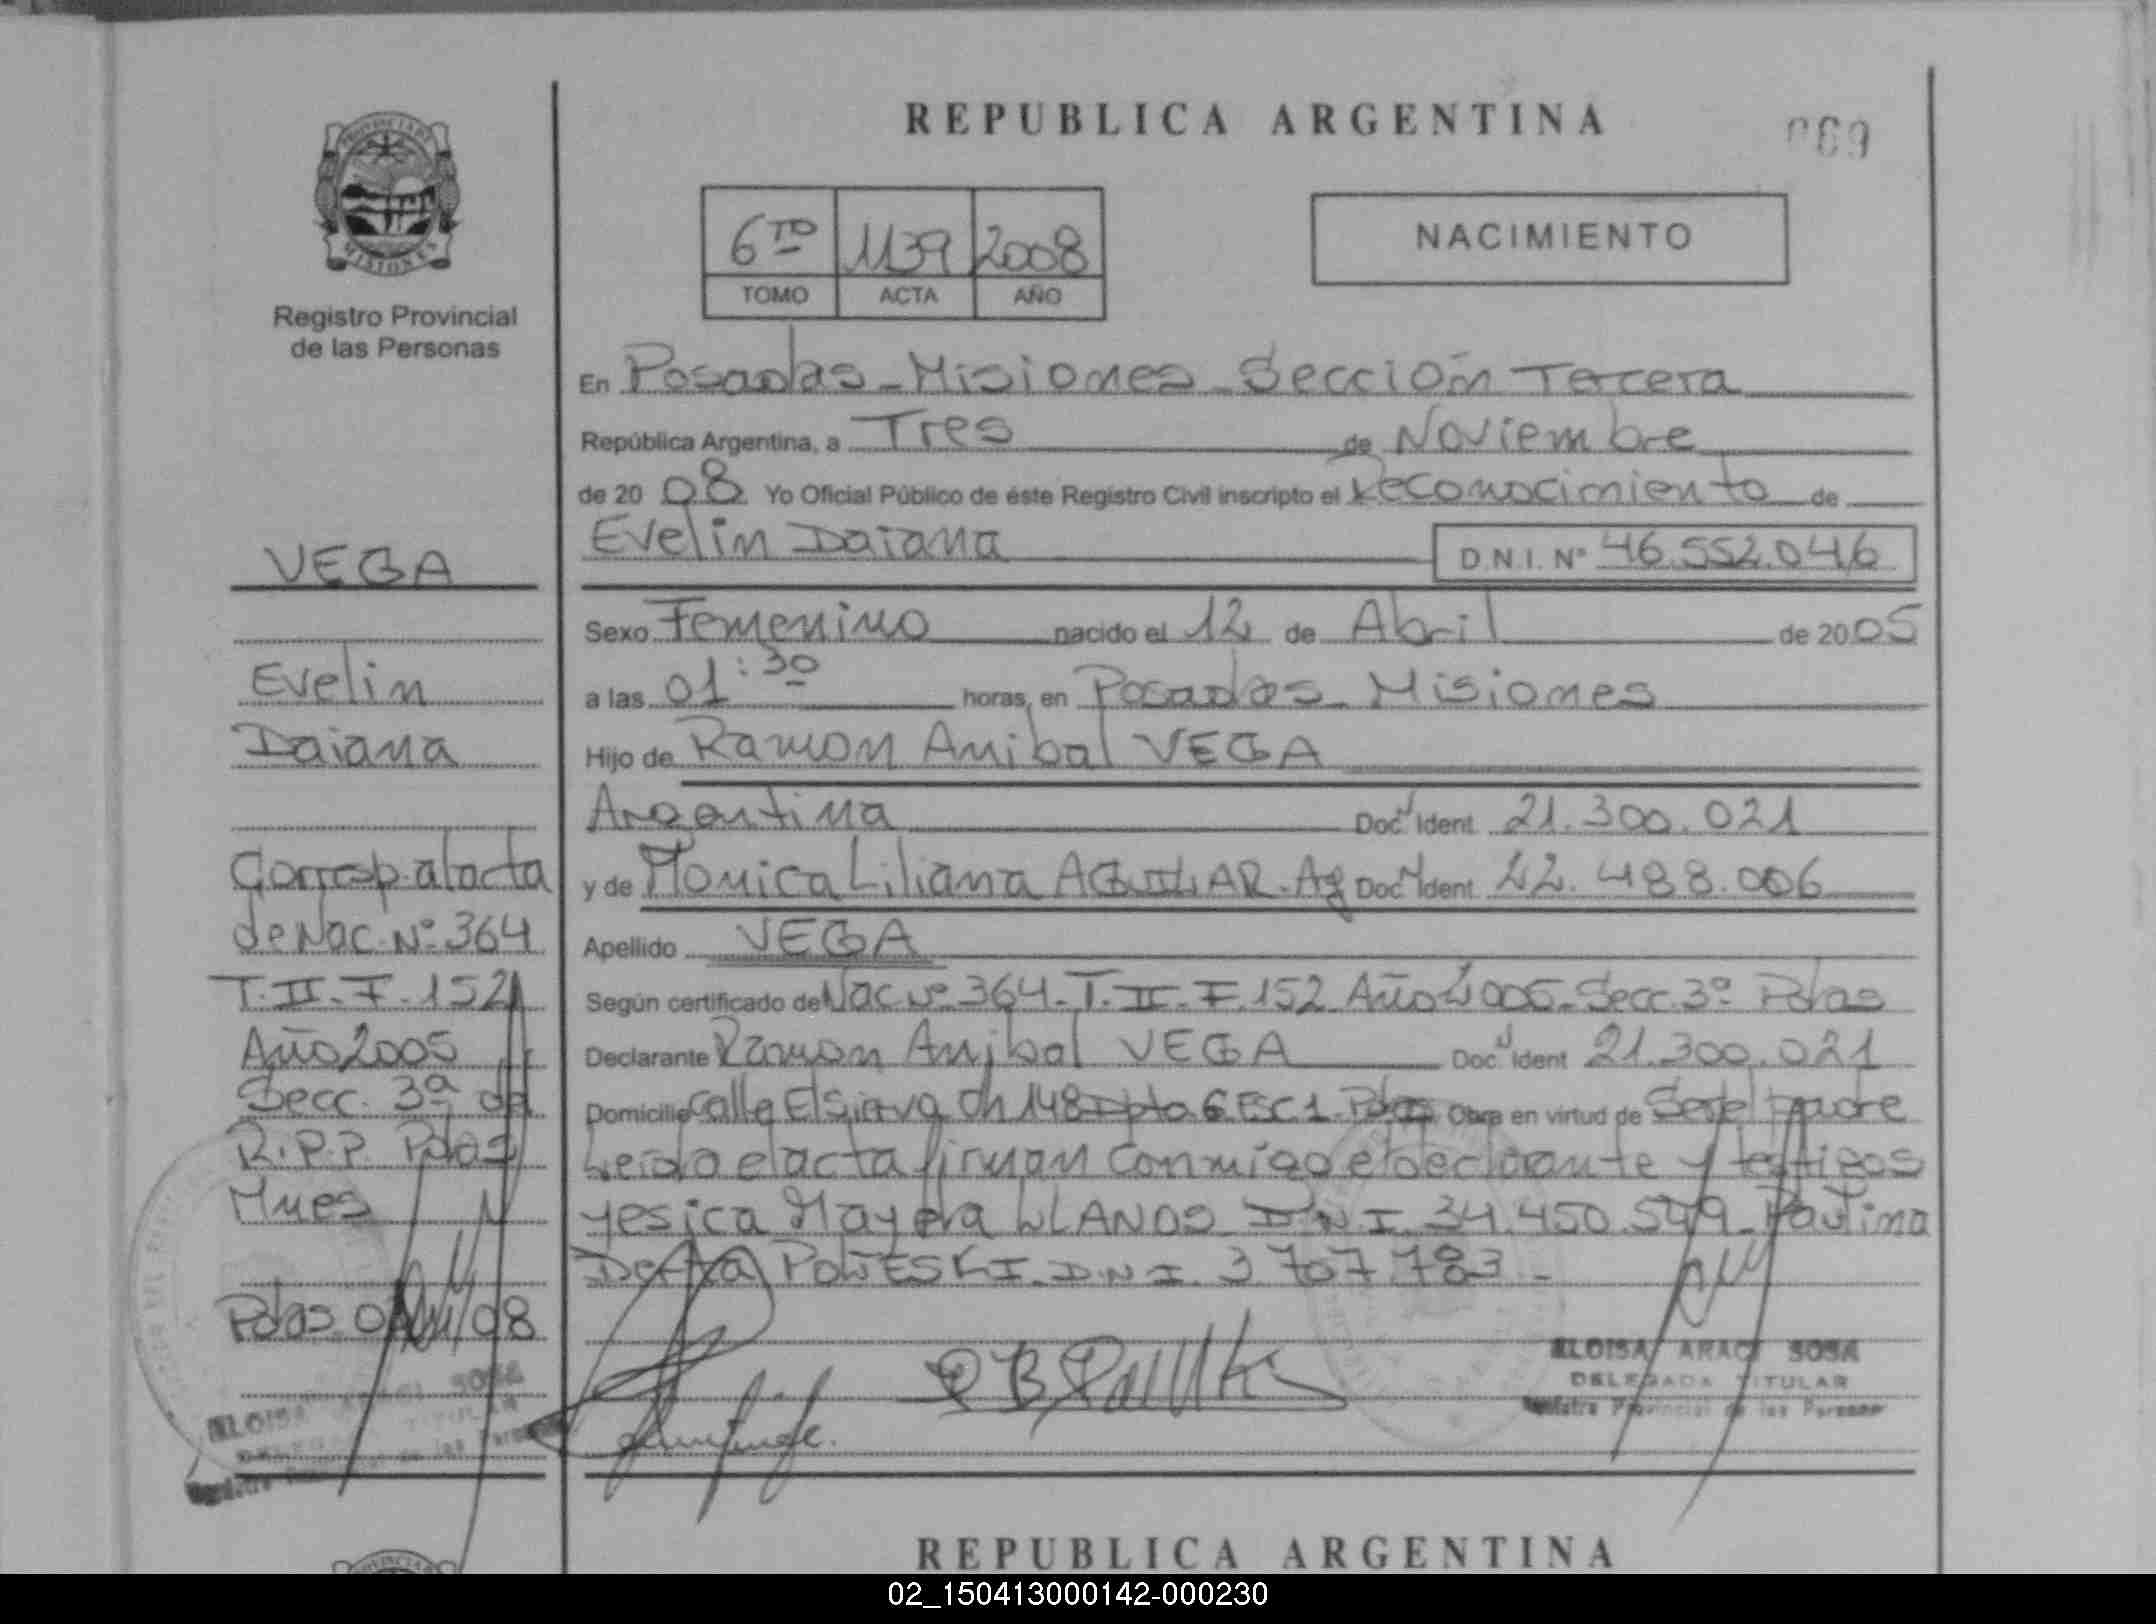 REPUBLICA ARGENTINA
069
PROVINCIA DE
MISIONES
Registro Provincial
de las Personas
6TO 1139 2008
TOMO ACTA AÑO
NACIMIENTO
En Posadas - Misiones - Sección Tercera
República Argentina, a Tres de Noviembre
de 2008 Yo Oficial Público de éste Registro Civil inscripto el Reconocimiento de
Evelin Daiana D.N.I. Nº 46.552.046
Sexo Femenino nacido el 12 de Abril de 2005
a las 01:30 horas, en Posadas - Misiones
Hijo de Ramon Anibal VEGA
Argentina Doc Ident 21.300.021
y de Monica Liliana AGUILAR. Ag Doc Ident 22.488.006
Apellido VEGA
Según certificado de Nac Nº 364 - T. II - F. 152 Año 2005 - Secc. 3º Pdas
Declarante Ramon Anibal VEGA Doc Ident 21.300.021
Domicilio Calle Ch 148 Dpto 6 ESC 1 Pdas Obra en virtud de Ser el padre
Leida el acta firman conmigo el declarante y testigos
Yesica LLANOS D.N.I. 34.450.549 - Paulina
D.N.I. 3.707.783 -
VEGA
Evelin
Daiana
Corresp. al acta
de Nac. Nº 364
T. II - F. 152
Año 2005
Secc. 3ª del
R.P.P. Pdas
Mnes
Pdas 08
ELOISA ARACI SOSA
DELEGADA TITULAR
Registro Provincial de las Personas
ELOISA ARACI SOSA
TITULAR
de las
REPUBLICA ARGENTINA
02_150413000142-000230